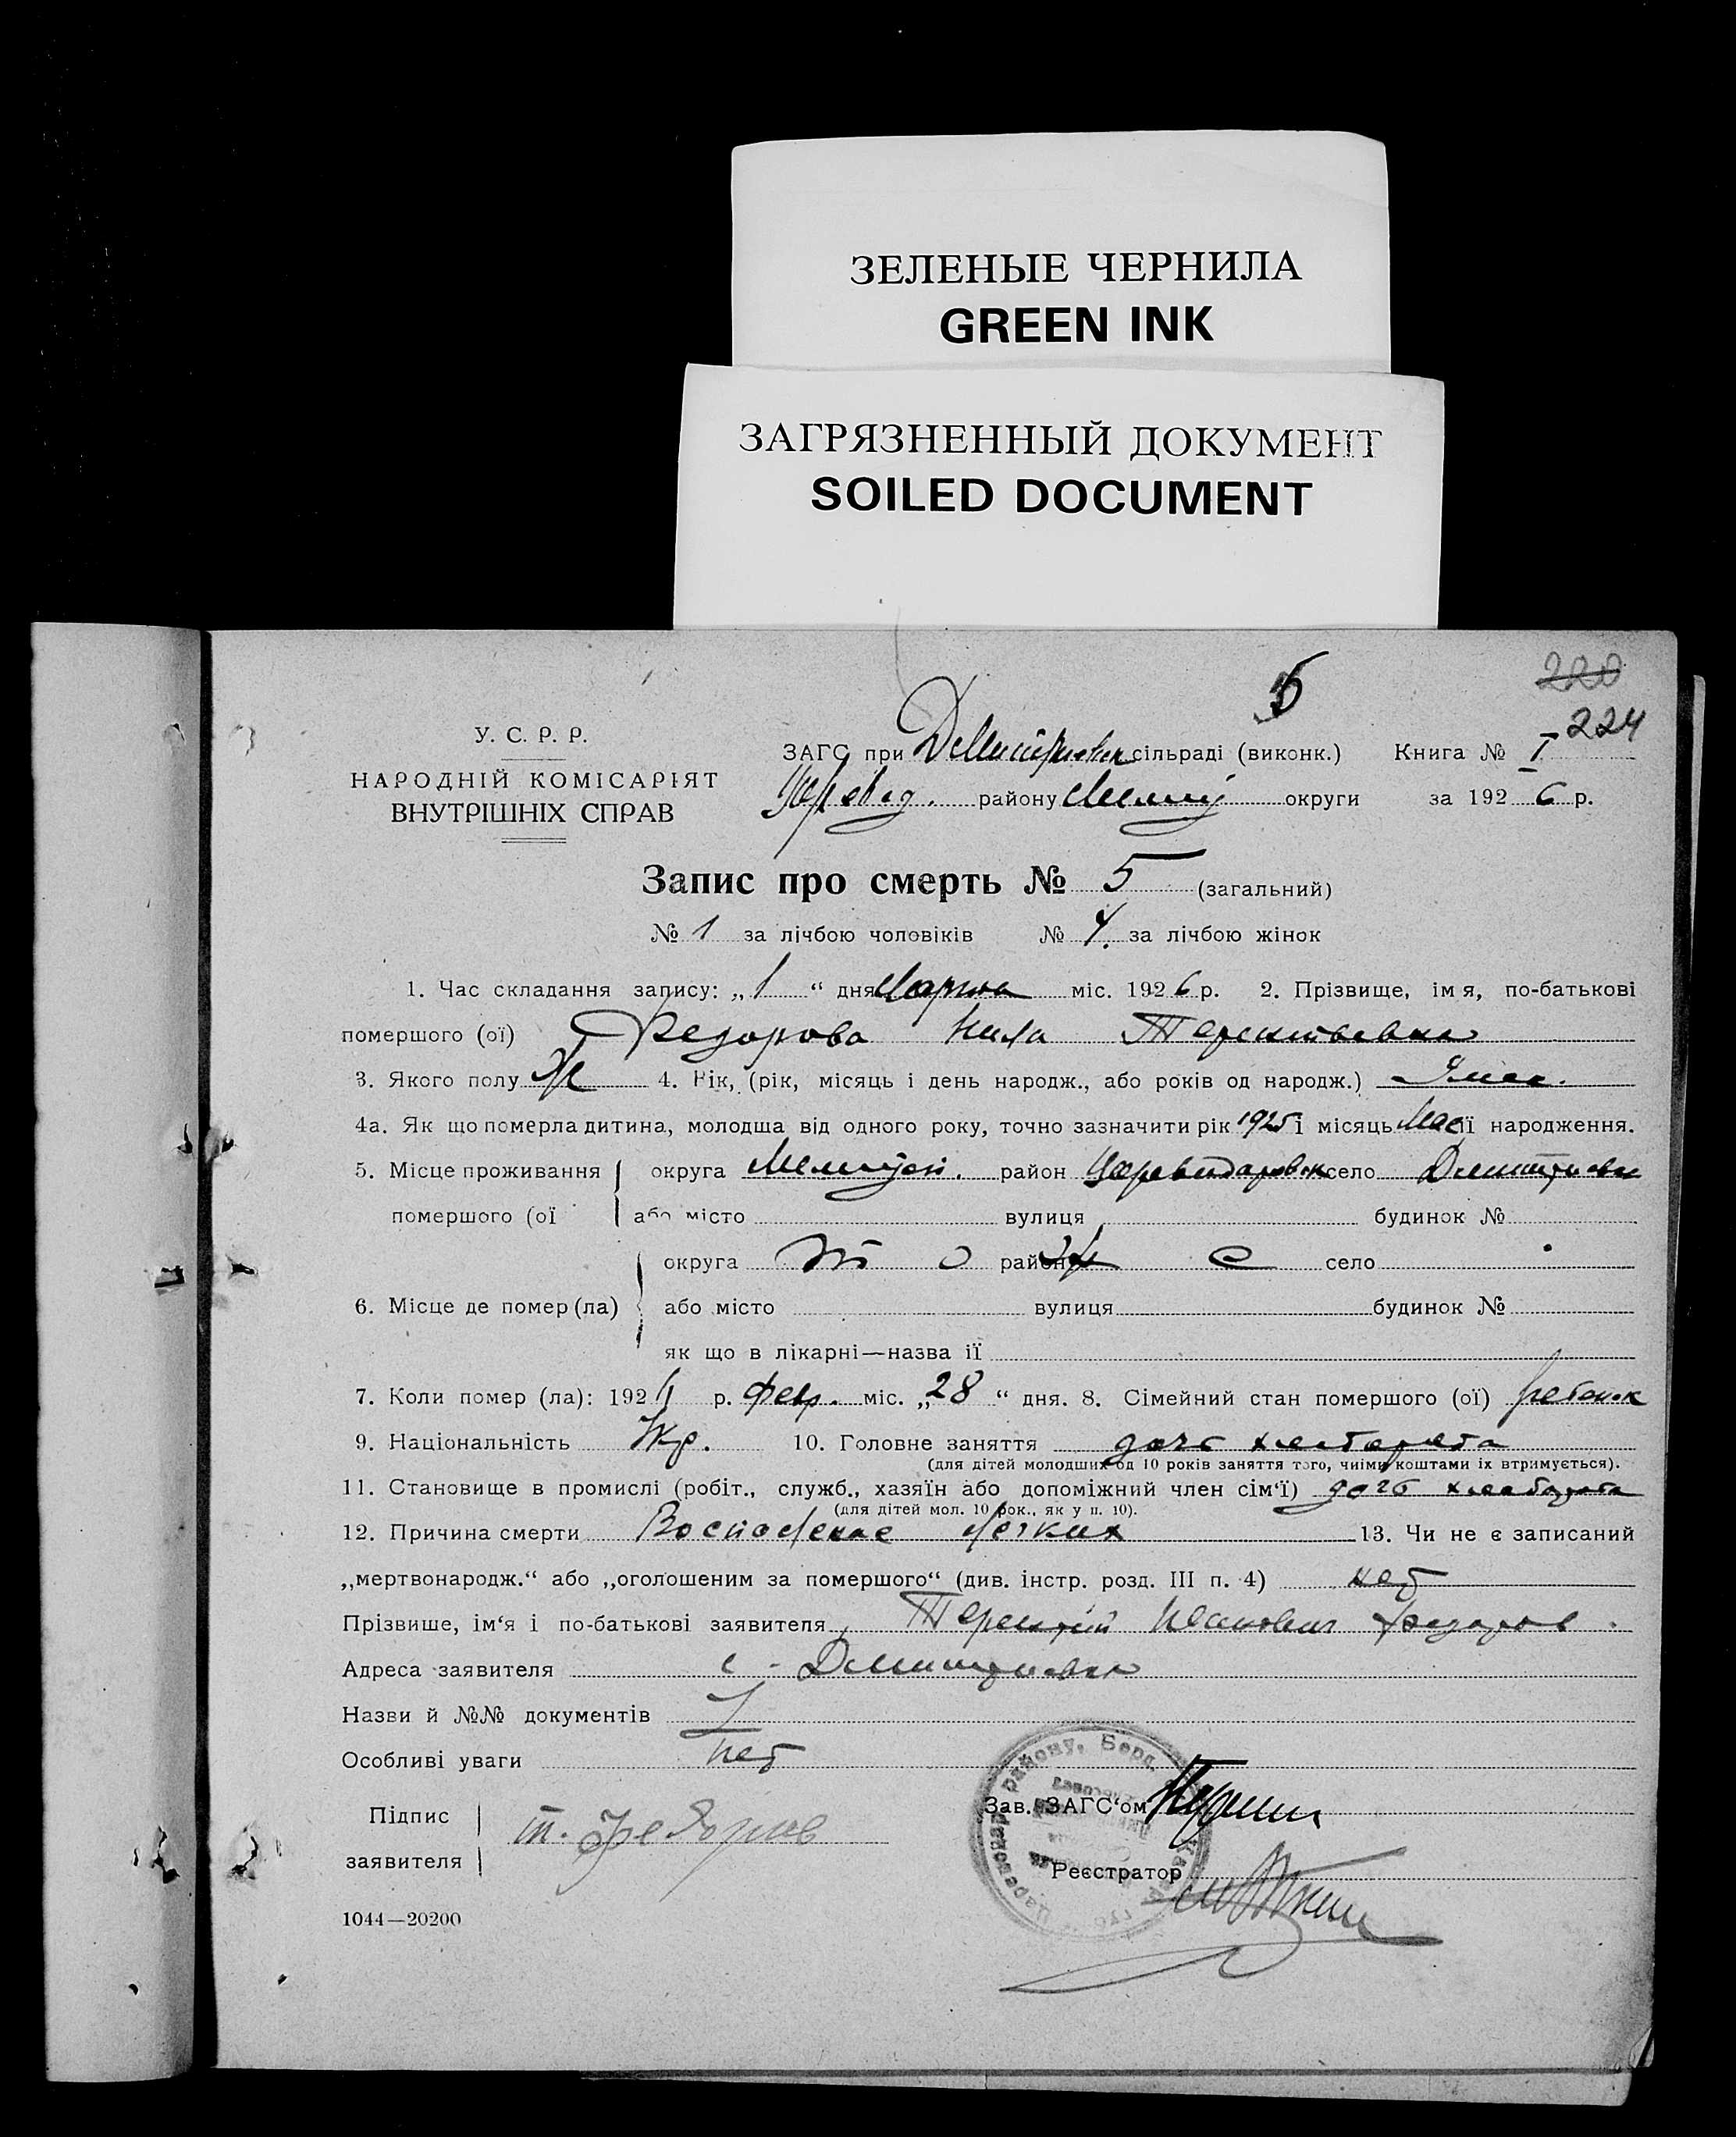 ЗЕЛЕНЫЕ ЧЕРНИЛА
GREEN INK
ЗАГРЯЗНЕННЫЙ ДОКУМЕНТ
SOILED DOCUMENT
5
220
224
У. С. Р. Р.
НАРОДНІЙ КОМІСАРІЯТ
ВНУТРІШНІХ СПРАВ
ЗАГС при сільраді (виконк.) Книга № I
району округи за 1926 р.
Запис про смерть № 5 (загальний)
№ 1 за лічбою чоловіків № 4. за лічбою жінок
1. Час складання запису: „1“ дня Марта міс. 1926 р. 2. Прізвище, імя, по-батькові
помершого (ої) Федорова Терентьевна
3. Якого полу Ж 4. Рік, (рік, місяць і день народж., або років од народж.)
4а. Як що померла дитина, молодша від одного року, точно зазначити рік 1925 і місяць Мая її народження.
5. Місце проживання округа район село
помершого (ої або місто вулиця будинок №
округа т о район ж е село
6. Місце де помер(ла) або місто вулиця будинок №
як що в лікарні—назва ії
7. Коли помер (ла): 192 р. Февр. міс. „28“ дня. 8. Сімейний стан помершого (ої) ребенок
9. Національність Укр. 10. Головне заняття дочь хлебороба
(для дітей молодших од 10 років заняття того, чиїми коштами іх втримується).
11. Становище в промислі (робіт., служб., хазяїн або допоміжний член сім‘ї) дочь хлебороба
(для дітей мол. 10 рок., як у п. 10).
12. Причина смерти Воспаление легких 13. Чи не є записаний
„мертвонародж.“ або „оголошеним за помершого“ (див. інстр. розд. III п. 4) нет
Прізвище, ім‘я і по-батькові заявителя Терентий Иванович Федоров.
Адреса заявителя с.
Назви й №№ документів
Особливі уваги нет
Підпис
заявителя
т. Федоров
району, Берд.
Зав. ЗАГС‘ом
Реєстратор
1044—20200